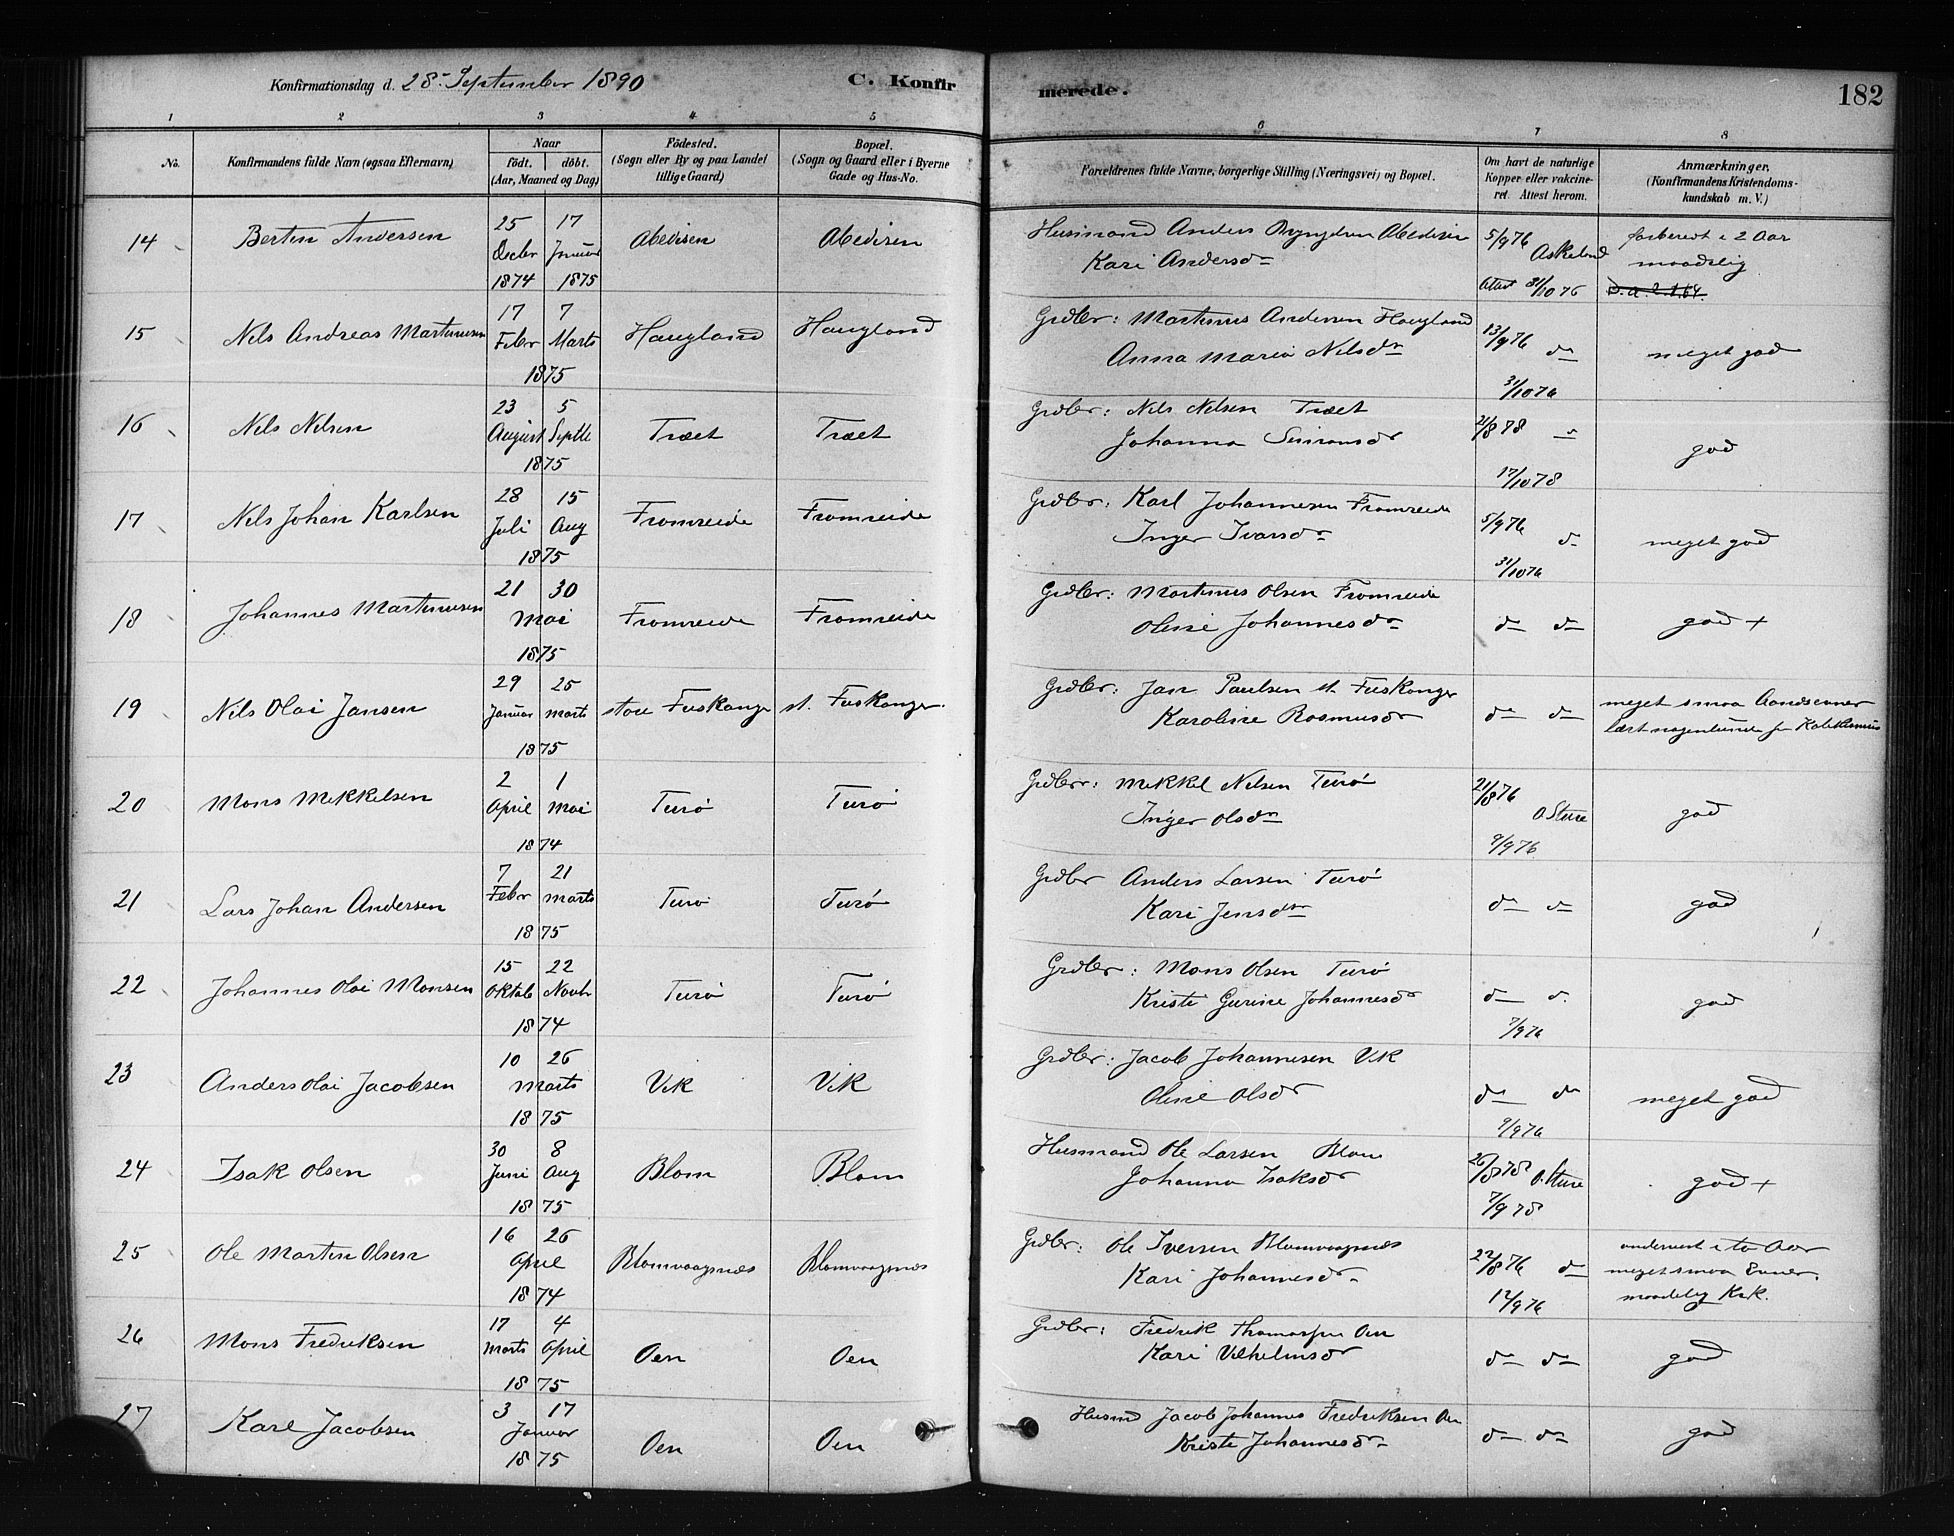 Konfirmationsdag d. 28. September 1890
C. Konfir
merede.
182
1 2 3 4 5 6 7 8
No.
Konfirmandens fulde Navn (ogsaa Efternavn)
Naar
födt. döbt.
(Aar, Maaned og Dag)
Födested.
(Sogn eller By og paa Landet
tillige Gaard)
Bopæl.
(Sogn og Gaard eller i Byerne
Gade og Hus-No.
Forældrenes fulde Navne, borgerlige Stilling (Næringsvei) og Bopæl.
Om havt de naturlige
Kopper eller vakcine-
ret. Attest herom.
Anmærkninger,
(Konfirmandens Kristendoms-
kundskab m. V.)
14 Bertin Andersen
25 17
Decbr Januar
1874 1875
Abedisen Abedisen
Husmand Anders Abedisen
Kari Andersdr
5/9 76 Askeland
Attest 31/10 76
forberedt i 2 Aar
maadelig
15 Nils Andreas Martinusen
17 7
Febr Marts
1875
Haugland Haugland
Grdbr: Martinus Andersen Haugland
Anna Maria Nilsdr
13/9 76 d
31/10 76
meget god
16 Nils Nilsen
23 5
August Septbr
1875
Træet Træet
Grdbr: Nils Nilsen Træet
Johanna Simonsdr
21/8 78
17/10 78
god
17 Nils Johan Karlsen
28 15
Juli Aug
1875
Fromreide Fromreide
Grdbr: Karl Johannesen Fromreide
Inger Ivarsdr
5/9 76 d
31/10 76
meget god
18 Johannes Martinusen
21 30
Mai
1875
Fromreide Fromreide
Grdbr: Martinus Olsen Fromreide
Oline Johannesdr
d d
god +
19 Nils Olai Jansen
29 25
Januar Marts
1875
store Fuskanger st. Fuskanger.
Grdbr: Jan Paulsen st. Fuskanger
Karoline Rasmusdr
d d
meget smaa Aandsevner
læst nogenlunde sin Katekismus
20 Mons Mikkelsen
2 1
April Mai
1874
Turö Turö
Grdbr: Mikkel Nilsen Turö
Inger Olsdr
21/8 76 O Sture
9/9 76
god
21 Lars Johan Andersen
7 21
Febr Marts
1875
Turö Turö
Grdbr Anders Larsen Turö
Kari Jensdtr
d d
god
22 Johannes Olai Monsen
15 22
Oktob Novbr
1874
Turö Turö
Grdbr: Mons Olsen Turö
Kristi Gurine Johannesdr
d d
7/9 76
god
23 Anders Olai Jacobsen
10 26
Marts
1875
Vik Vik
Grdbr: Jacob Johannesen Vik
Oline Olsdr
d d
9/9 76
meget god
24 Isak Olsen
30 8
Juni Aug
1875
Blom Blom
Husmand Ole Larsen Blom
Johanna Isaksdr
26/8 78 O. Sture
7/9 78
god +
25 Ole Martin Olsen
16 26
April
1874
Blomvaagsnæs Blomvaagsnæs
Grdbr: Ole Iversen Blomvaagsnæs
Kari Johannesdr
22/8 76 d
12/9 76
undervist i to Aar
meget smaa Evner.
maadelig Krk.
26 Mons Fredriksen
17 4
Marts April
1875
Oen Oen
Grdbr: Fredrik Thomassen Oen
Kari Vilhelmsdr
d d
god
27 Karl Jacobsen
3 17
Januar
1875
Oen Oen
Husmd Jacob Johannes Fredriksen Oen
Kristi Johannesdr
d d
god